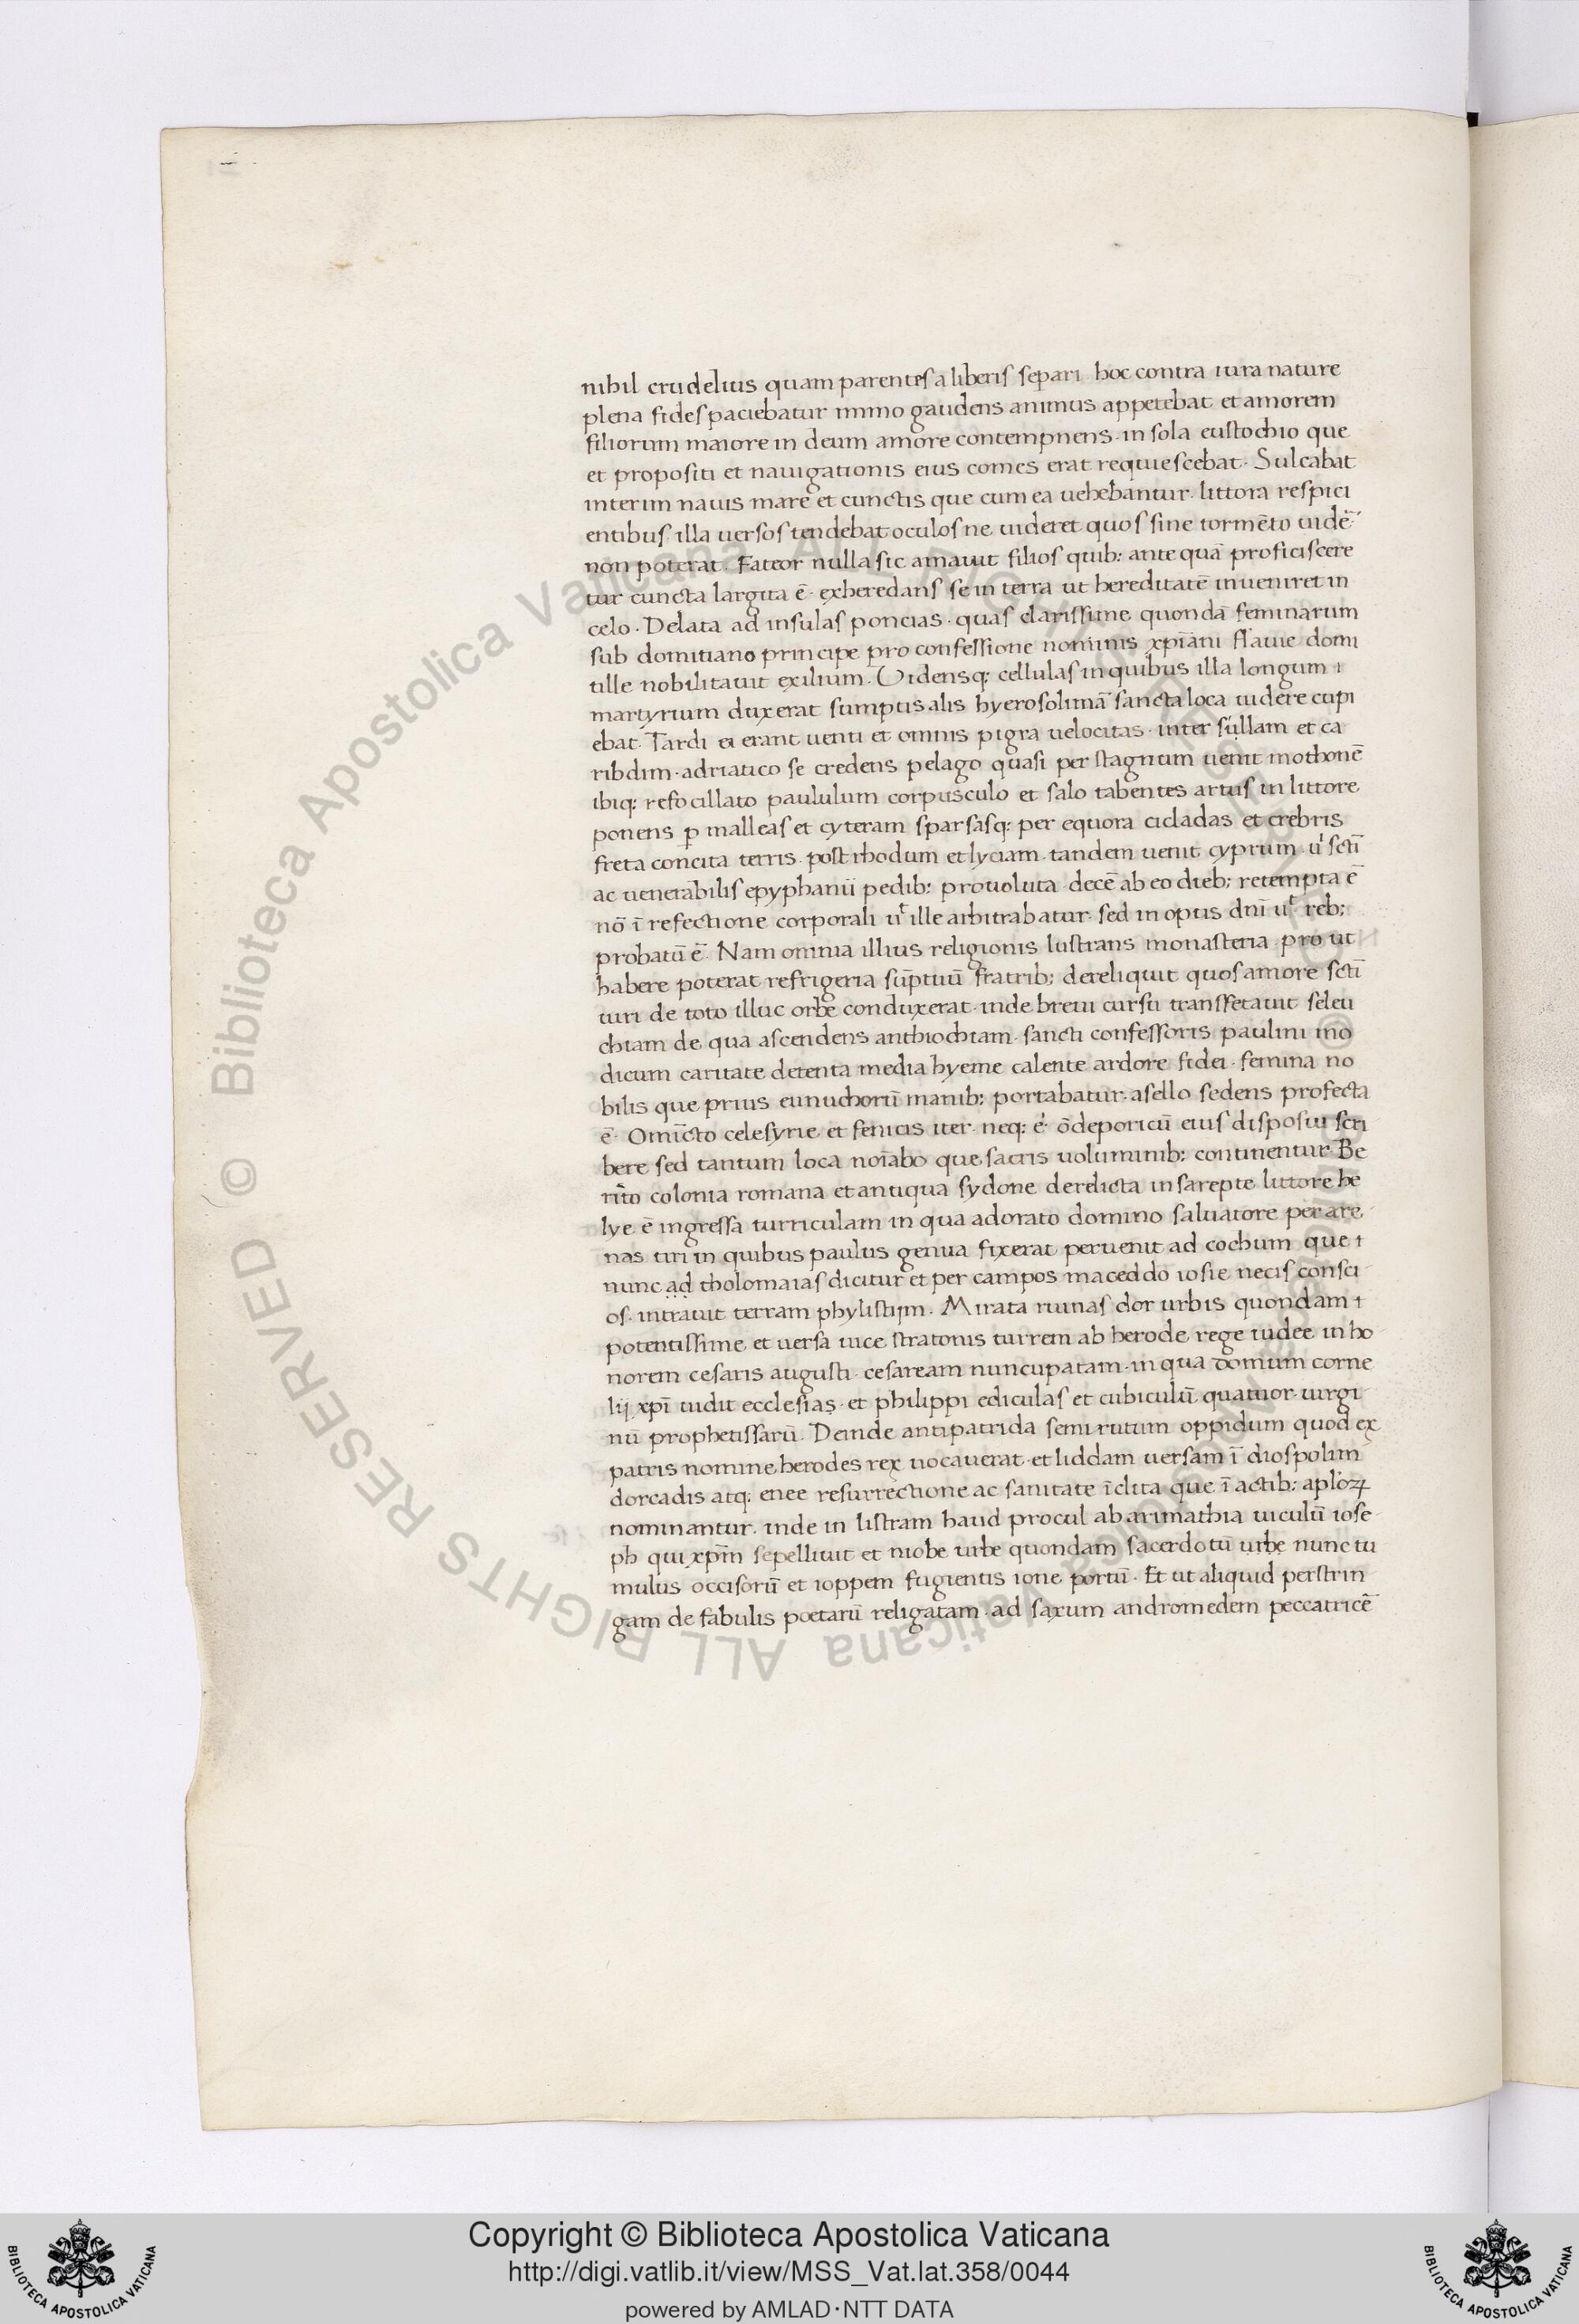 nihil crudelius quam parentes a liberis separi hoc contra iura nature
plena fides paciebatur immo gaudens animus appetebat et amorem
filiorum maiore in deum amore contempnens · in sola eustochio que
et propositi et nauigationis eius comes erat requiescebat · Sulcabat
interim nauis mare et cunctis que cum ea uehebantur · littora respici
entibus illa uersos tendebat oculos ne uideret quos sine tormēto uidē
non poterat · Fateor nulla sic amauit filios quib: ante quā proficiscere
tur cuncta largita ē · exheredans se in terra ut hereditatē inueniret in
celo · Delata ad insulas poncias · quas clarissime quondā feminarum
sub domitiano principe pro confessione nominis xp̄iani flauie domi
tille nobilitauit exilium · Vidensq: cellulas in quibus illa longum
martyrium duxerat sumptis alis hyerosolimā sancta loca uidere cupi
ebat · Tardi ei erant uenti et omnis pigra uelocitas · inter sullam et ca
ribdim · adriatico se credens pelago quasi per stagnum uenit mothonē
ibiq: refocillato paululum corpusculo et salo tabentes artus in littore
ponens p malleas et cyteram sparsasq: per equora cicladas et crebris
freta concita terris · post rhodum et lyciam · tandem uenit cyprum · u' sctī
ac uenerabilis epyphanii pedib: prouoluta · decē ab eo dieb: retempta ē
nō ī refectione corporali ut ille arbitrabatur · sed in opus dn̄i ut reb:
probatū ē · Nam omnia illius religionis lustrans monasteria pro ut
habere poterat refrigeria sūptuū fratrib: dereliquit quos amore sctī
uiri de toto illuc orbe conduxerat · inde breui cursu transfetauit seleu
chiam de qua ascendens anthiochiam · sancti confessoris paulini mo
dicum caritate detenta media hyeme calente ardore fidei · femina no
bilis que prius eunuchorū manib: portabatur · asello sedens profecta
ē · Omicto celesyrie et fenicis iter · neq: ē ōdeporicū eius disposui scri
bere sed tantum loca noīabo que sacris uoluminib: continentur · Be
rito colonia romana et antiqua sydone derelicta in sarepte littore he
lye ē ingressa turriculam in qua adorato domino saluatore per are
nas tiri in quibus paulus genua fixerat peruenit ad cochum que
nunc ad tholomaias dicitur et per campos maceddo iosie necis consci
os · intrauit terram phylistijm · Mirata ruinas dor urbis quondam
potentissime et uersa uice stratonis turrem ab herode rege iudee in ho
norem cesaris augusti · cesaream nuncupatam · in qua domum corne
lij xp̄i uidit ecclesias · et philippi ediculas et cubiculū quatuor uirgi
nū prophetissarū · Deinde antipatrida semirutum oppidum quod ex
patris nomine herodes rex uocauerat · et liddam uersam ī diospolim
dorcadis atq: enee resurrectione ac sanitate īclita que ī actib: aploꝝ
nominantur · inde in listram haud procul ab arimathia uiculū iose
ph qui xp̄m sepelliuit et niobe urbe quondam sacerdotū urbe nunc tu
mulus occisorū et ioppem fugientis ione portū · Et ut aliquid perstrin
gam de fabulis poetarū religatam · ad saxum andromedem peccatricē
Copyright © Biblioteca Apostolica Vaticana
http://digi.vatlib.it/view/MSS_Vat.lat.358/0044
powered by AMLAD·NTT DATA